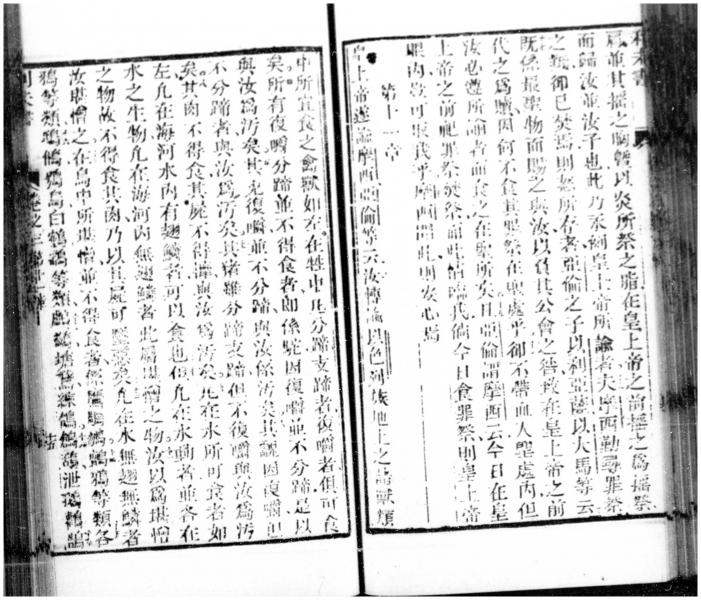 利未書
肩並其搖之胸臔以炎所祭之脂在皇上帝之前搖之爲搖祭
而歸汝並汝子也此乃永例皇上帝所諭者夫摩西勒尋罪祭
之 卻已焚焉則怒所存者亞倫之子以利亞薩以大馬等云
既係最聖物而賜之與汝以負其公會之咎致在皇上帝之前
代之爲贖因何不食其罪祭在聖處乎卻不帶血入聖處內但
汝必遵所誦者而食之在聖所矣且亞倫謂摩西云今日在皇
上帝之前祀罪祭燹祭而此情臨我倘今日食罪祭則皇上帝
眼內豈可取我乎摩西聞此則安心焉
第十一章
皇上帝遂諭摩西亞倫等云汝傳諭以色列族地上之諸獸類
中所宜食之禽獸如左在牲中凡分蹄支蹄者復嚼者俱可食
矣所有復嚼分蹄並不得食者即係駝因復嚼並不分蹄足以
與汝爲汚矣其兎復嚼並不分蹄與汝係汚矣其 因復嚼但
不分蹄者與汝爲汚矣其猪雖分蹄支蹄但不復嚼與汝爲汚
矣其肉不得食其屍不得 與汝爲汚矣凡在水所可食者如
左凡在海河水內有翅鱗者可以食也但凡在水動者並各在
水之生物凡在海河內無翅鱗者此屬堪憎之物汝以爲堪憎
之物故不得食其肉乃以其屍可 惡矣凡在水無翅無鱗者
汝堪憎之在鳥中所堪憎並不得食者係鷹 鶚鴉等類各
鴉等類 鳥白鶴 等類
利未書 卷之三